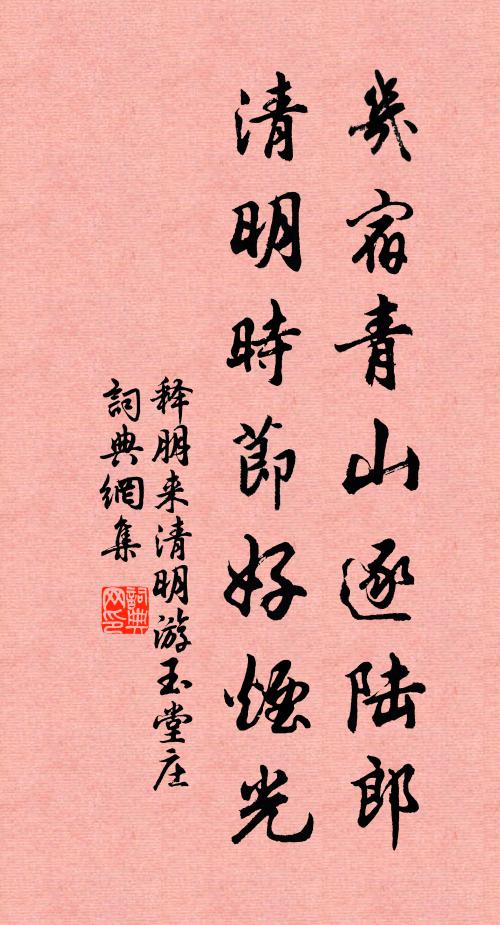 幾宿青山逐陆郎
清明時節好煙光
释朋来清明游玉堂庄
詞典網集
詞典网印